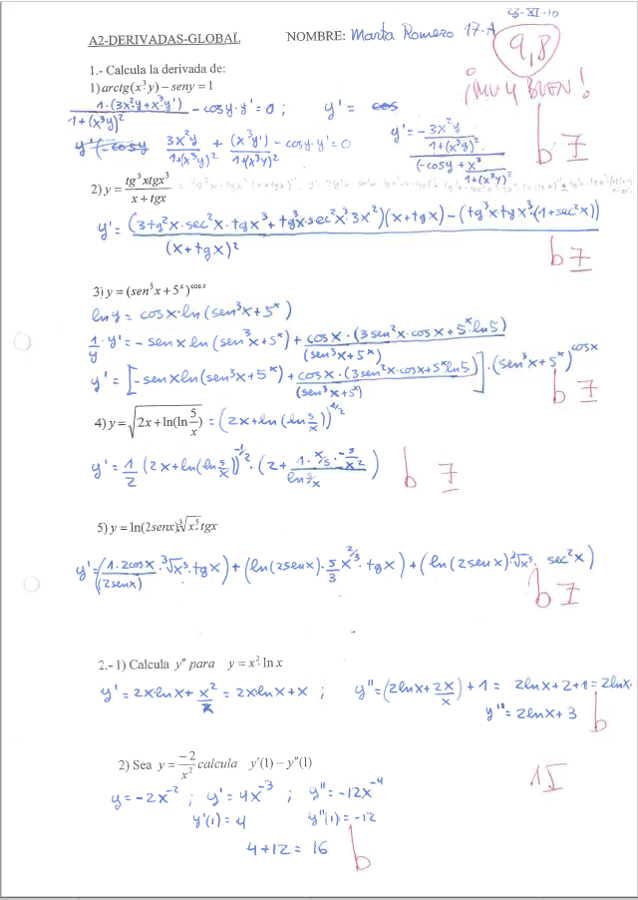 25-XI-10
A2-DERIVADAS-GLOBAL NOMBRE: Marta Romero 17.A
9,8
¡MUY BUEN!
1.- Calcula la derivada de:
1) arctg(x³y) – seny = 1
1·(3x²y+x³·y')/1+(x³y)² - cosy·y' = 0 ; y' = cos
y'(-cosy 3x²y/1+(x³y)² + (x³y')/1+(x³y)² - cosy·y' = 0 y' = (-3x²y/1+(x³y)²)/(-cosy + x³/1+(x³y)²)
b 7
2) y = tg³xtgx³/x + tgx
y' = (3tg²x·sec²x·tgx³ + tg³x·sec²x³·3x²)(x+tgx) - (tg³xtgx³·(1+sec²x))/(x+tgx)²
b 7
3) y = (sen³x + 5ˣ)^cosx
ln y = cosx·ln(sen³x + 5ˣ)
1/y · y' = - senx ln(sen³x + 5ˣ) + cosx·(3sen²x·cosx + 5ˣ ln5)/(sen³x + 5ˣ)
y' = [-senxln(sen³x + 5ˣ) + cosx·(3sen²x·cosx + 5ˣ ln5)/(sen³x + 5ˣ)]·(sen³x + 5ˣ)^cosx
b 7
4) y = √(2x + ln(ln 5/x)) = (2x + ln(ln 5/x))^1/2
y' = 1/2 (2x + ln(ln 5/x))^-1/2 · (2 + 1·x/5·-5/x²/ln 5/x)
b 7
5) y = ln(2senx)∛x⁵tgx
y' = (1·2cosx/(2senx)·∛x⁵·tgx) + (ln(2senx)·5/3 x^2/3·tgx) + (ln(2senx)·∛x⁵·sec²x)
b 7
2.- 1) Calcula y'' para y = x²·ln x
y' = 2x·lnx + x²/x = 2xlnx + x ; y'' = (2lnx + 2x/x) + 1 = 2lnx + 2 + 1 = 2lnx.
y'' = 2lnx + 3
b
2) Sea y = -2/x² calcula y'(1) – y''(1)
15
y = -2x⁻² ; y' = 4x⁻³ ; y'' = -12x⁻⁴
y'(1) = 4 y''(1) = -12
4 + 12 = 16
b